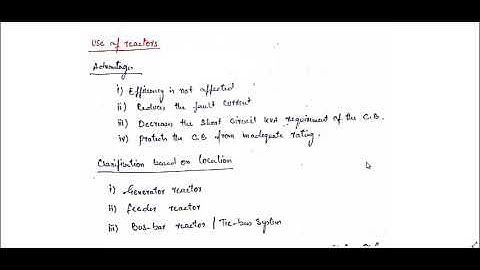 Use of reactors
Advantages
i) Efficiency is not affected
ii) Reduces the fault current
iii) Decreases the short circuit KVA requirement of the C.B.
iv) protects the C.B from inadequate rating.
Classification based on Location
i) Generator reactor
ii) feeder reactor
iii) Bus-bar reactor / Tie-bus System